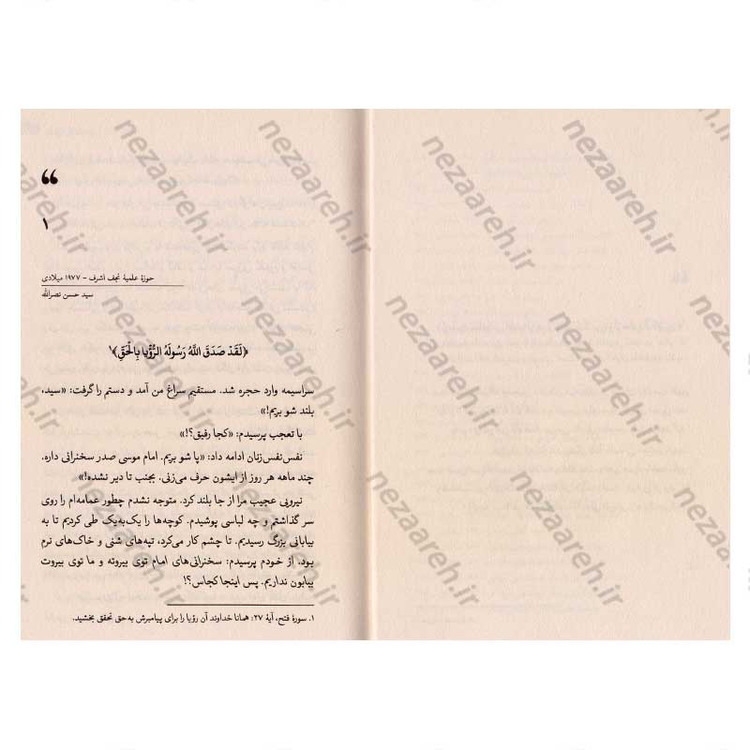 ❝
۱
حوزهٔ علمیهٔ نجف اشرف - ۱۹۷۷ میلادی
سید حسن نصرالله
﴿لَقَدْ صَدَقَ اللَّهُ رَسُولَهُ الرُّؤْيا بِالْحَقِّ﴾۱
سراسیمه وارد حجره شد. مستقیم سراغ من آمد و دستم را گرفت: «سید،
بلند شو بریم!»
با تعجب پرسیدم: «کجا رفیق؟!»
نفس‌نفس‌زنان ادامه داد: «پا شو بریم. امام موسی صدر سخنرانی داره.
چند ماهه هر روز از ایشون حرف می‌زنی. بجنب تا دیر نشده!»
نیرویی عجیب مرا از جا بلند کرد. متوجه نشدم چطور عمامه‌ام را روی
سر گذاشتم و چه لباسی پوشیدم. کوچه‌ها را یک‌به‌یک طی کردیم تا به
بیابانی بزرگ رسیدیم. تا چشم کار می‌کرد، تپه‌های شنی و خاک‌های نرم
بود. از خودم پرسیدم: سخنرانی‌های امام توی بیروته و ما توی بیروت
بیابون نداریم. پس اینجا کجاس؟!
۱. سورهٔ فتح، آیهٔ ۲۷: همانا خداوند آن رؤیا را برای پیامبرش به‌حق تحقق بخشید.
nezaareh.ir